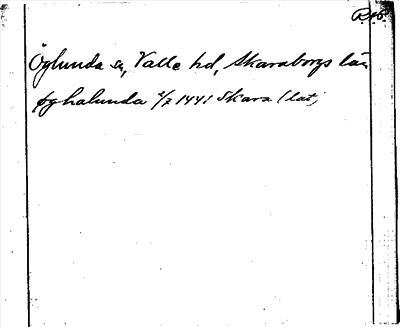 Öglunda sn, Valle hd, Skaraborgs län
øghalunda 2/2 1441 Skara (lat)